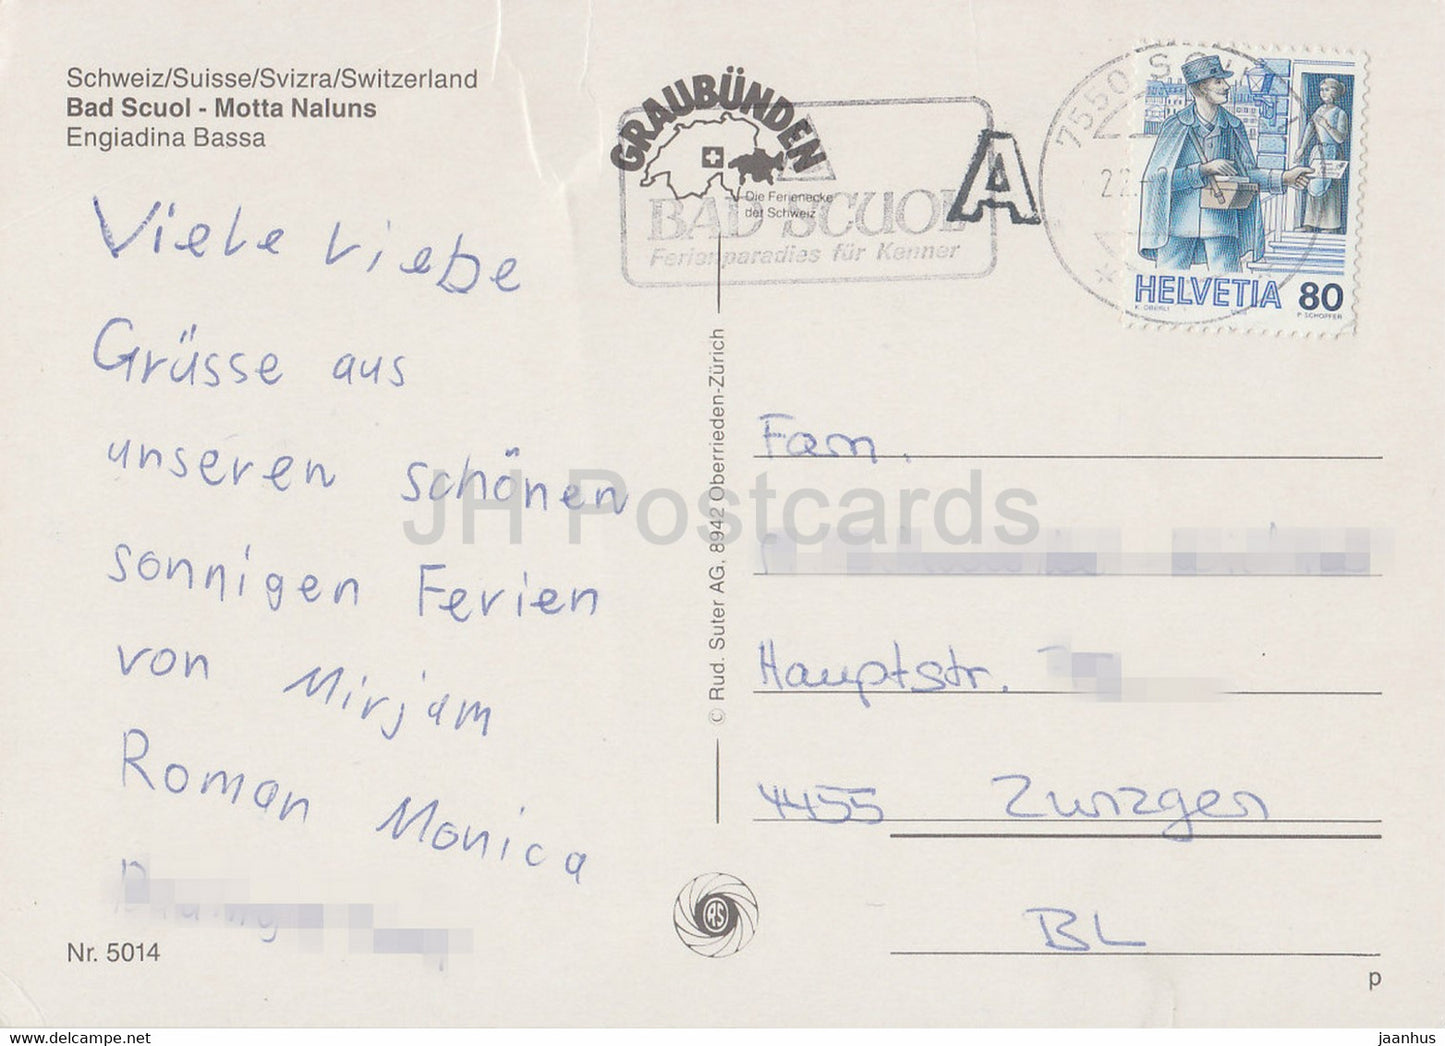 Schweiz/Suisse/Svizra/Switzerland
Bad Scuol - Motta Naluns
Engiadina Bassa
GRAUBÜNDEN
Die Ferienecke
der Schweiz
BAD SCUOL
Ferienparadies für Kenner
A
7550 S
22.
HELVETIA 80
K. OBERLI P. SCHOPFER
Viele Liebe
Grüsse aus
unseren schönen
sonnigen Ferien
von Mirjam
Roman Monica
Nr. 5014
© Rud. Suter AG, 8942 Oberrieden-Zürich
RS
Fam.
Hauptstr.
4455 Zunzgen
BL
p
JH Postcards
hippostcard.com
jaanhus